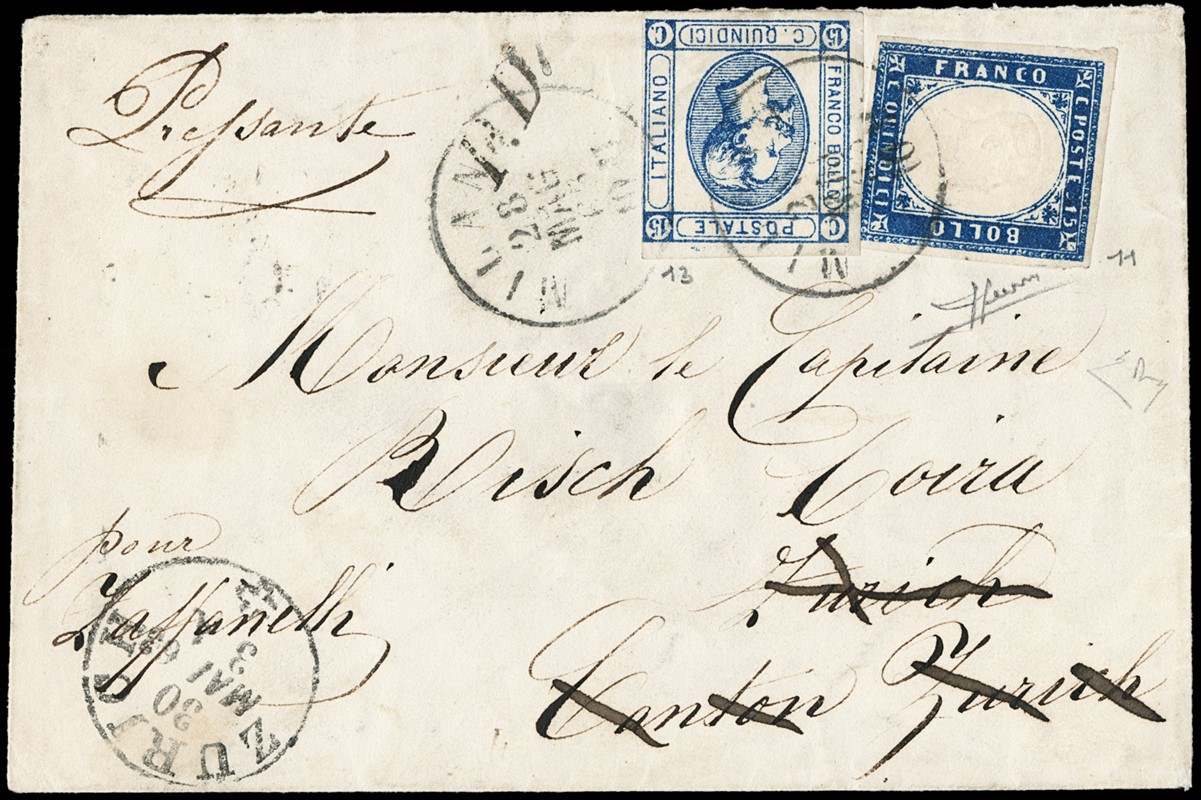 Pressante
P.D.
C 15
C. QUINDICI
15 C
I TALIANO
FRANCO BOLLO
15
POSTALE
C
FRANCO
C. POSTE 15
C QUINDICI
BOLLO
MILANO
28
MAG
MILANO
13
11
Monsieur le Capitaine
Risch Coira
pour
Zaffanelli
Zurich
Canton Zurich
ZURICH
30
MAI
63